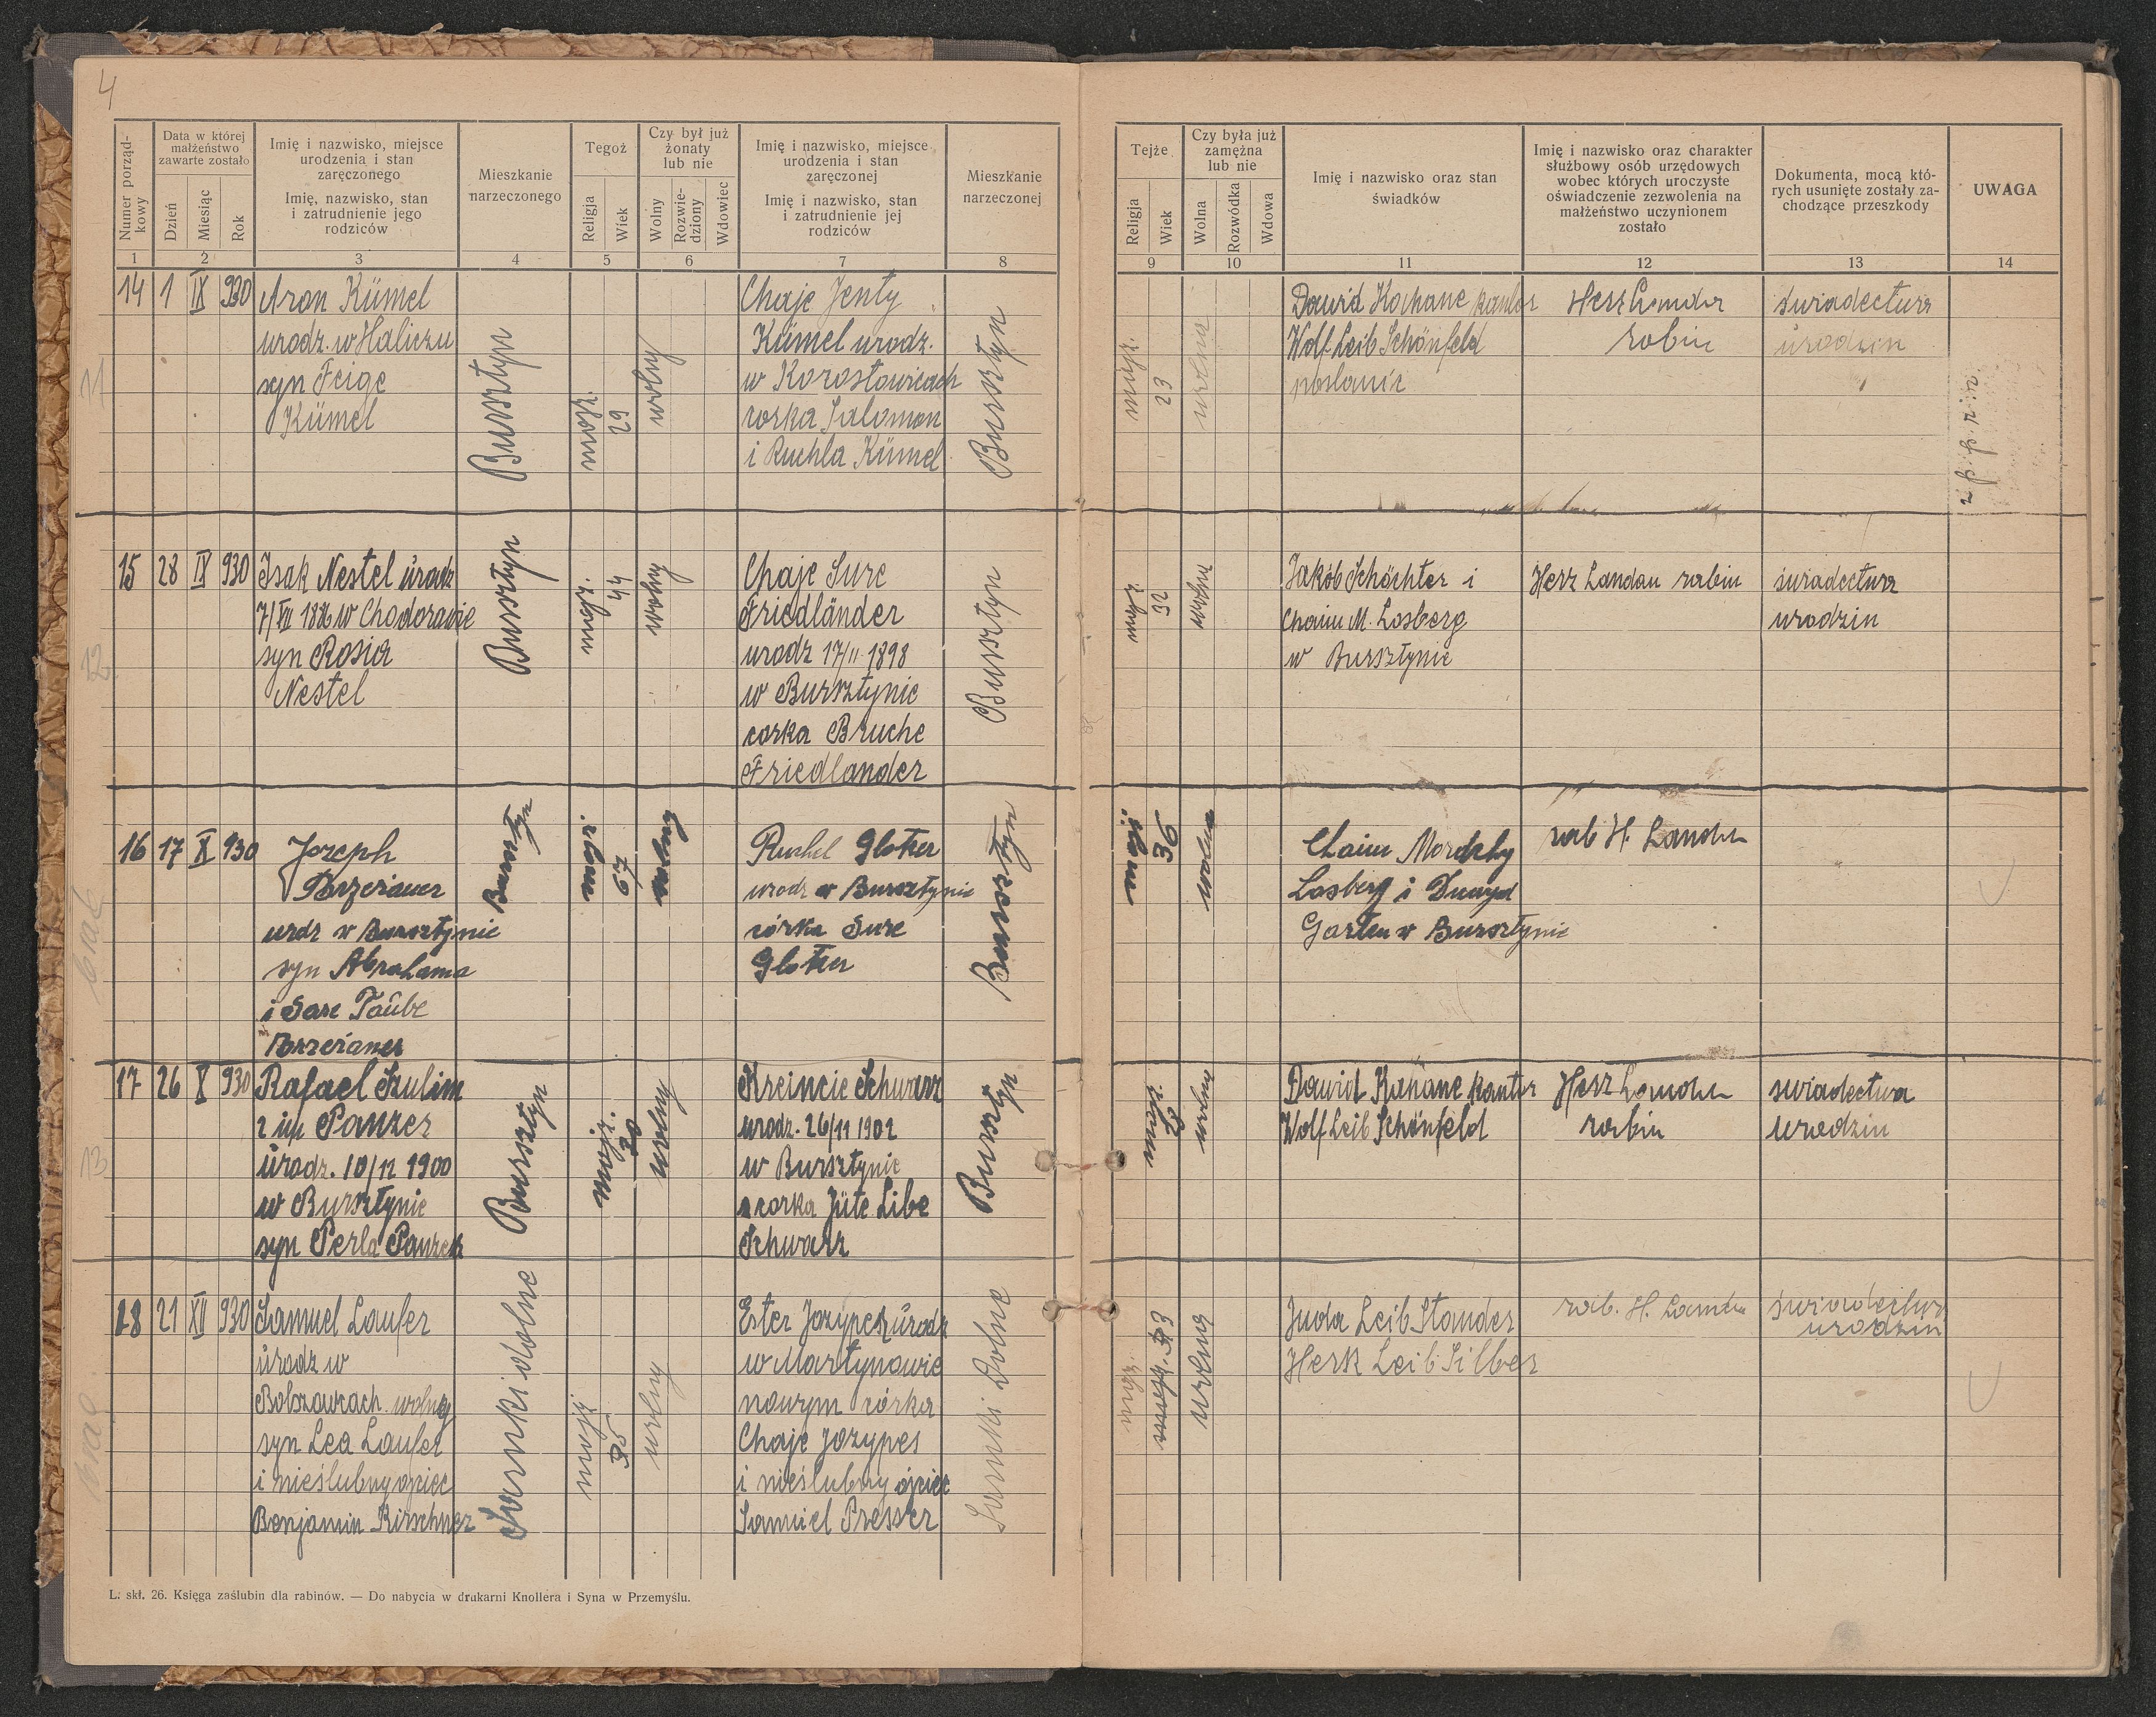 4
Numer porządkowy
Data w której
małżeństwo
zawarte zostało
Dzień
Miesiąc
Rok
Imię i nazwisko, miejsce
urodzenia i stan
zaręczonego
Imię, nazwisko, stan
i zatrudnienie jego
rodziców
Mieszkanie
narzeczonego
Tegoż
Religja
Wiek
Czy był już
żonaty
lub nie
Wolny
Rozwiedziony
Wdowiec
Imię i nazwisko, miejsce
urodzenia i stan
zaręczonej
Imię i nazwisko, stan
i zatrudnienie jej
rodziców
Mieszkanie
narzeczonej
1 2 3 4 5 6 7 8
Tejże
Religja
Wiek
Czy była już
zamężna
lub nie
Wolna
Rozwódka
Wdowa
Imię i nazwisko oraz stan
świadków
Imię i nazwisko oraz charakter
służbowy osób urzędowych
wobec których uroczyste
oświadczenie zezwolenia na
małżeństwo uczynionem
zostało
Dokumenta, mocą któ-
rych usunięte zostały za-
chodzące przeszkody
UWAGA
9 10 11 12 13 14
11
14 1 IX 930
Aron Kümel
urodz. w Haliczu
syn Feige
Kümel
Bursztyn
mojż.
29
wolny
Chaje Jenty
Kümel urodz.
w Korostowicach
corka Salomon
i Ruchla Kümel
Bursztyn
mojż.
23
wolna
Dawid Kahane kantor
Wolf Leib Schönfeld
posłanic
Herz Landau
rabin
świadectwa
urodzin
12
15 28 IX 930
Isak Nestel urodz
7/VII 1886 w Chodorowie
syn Rosia
Nestel
Bursztyn
mojż.
44
wolny
Chaje Sure
Friedländer
urodz 17/II 1898
w Bursztynie
corka Bruche
Friedlander
Bursztyn
mojż.
32
wolna
Jakób Schächter i
Chaim M. Losberg
w Bursztynie
Herz Landau rabin
świadectwa
urodzin
brak
16 17 X 930
Jozeph
Brzezaner
urdz w Bursztynie
syn Abrahama
i Sare Taube
Brzezaner
Bursztyn
mojż.
67
wolny
Ruchel Glotzer
urodz w Bursztynie
córka Sure
Glotzer
Bursztyn
mojż.
36
wolna
Chaim Mordchy
Losberg i Dawyd
Garten w Bursztynie
rab H. Landau
13
17 26 X 930
Rafael Szulim
2 im Panzer
urodz. 10/12 1900
w Bursztynie
syn Perla Panzer
Bursztyn
mojż.
30
wolny
Kreincie Schwarz
urodz. 26/11 1902
w Bursztynie
corka Jüte Libe
Schwarz
Bursztyn
mojż.
wolny
Dawid Kahane kantor
Wolf Leib Schönfeld
Herz Landau
rabin
swiadectwa
urodzin
brak
18 21 XII 930
Samuel Laufer
urodz w
Bolszowcach wolny
syn Lea Laufer
i nieślubny ojciec
Benjamin Kirschner
Sarnki dolne
mojż
35
wolny
Ester Jozypes urodz
w Martynowie
nowym córka
Chaje Jozypes
i nieślubny ojciec
Samuel Presser
Sarnki Dolne
mojż.
33
wolna
Juda Leib Stander
Hersz Leib Silber
rab. H. Landau
świadectwa
urodzin
L: skł. 26. Księga zaślubin dla rabinów. — Do nabycia w drukarni Knollera i Syna w Przemyślu.